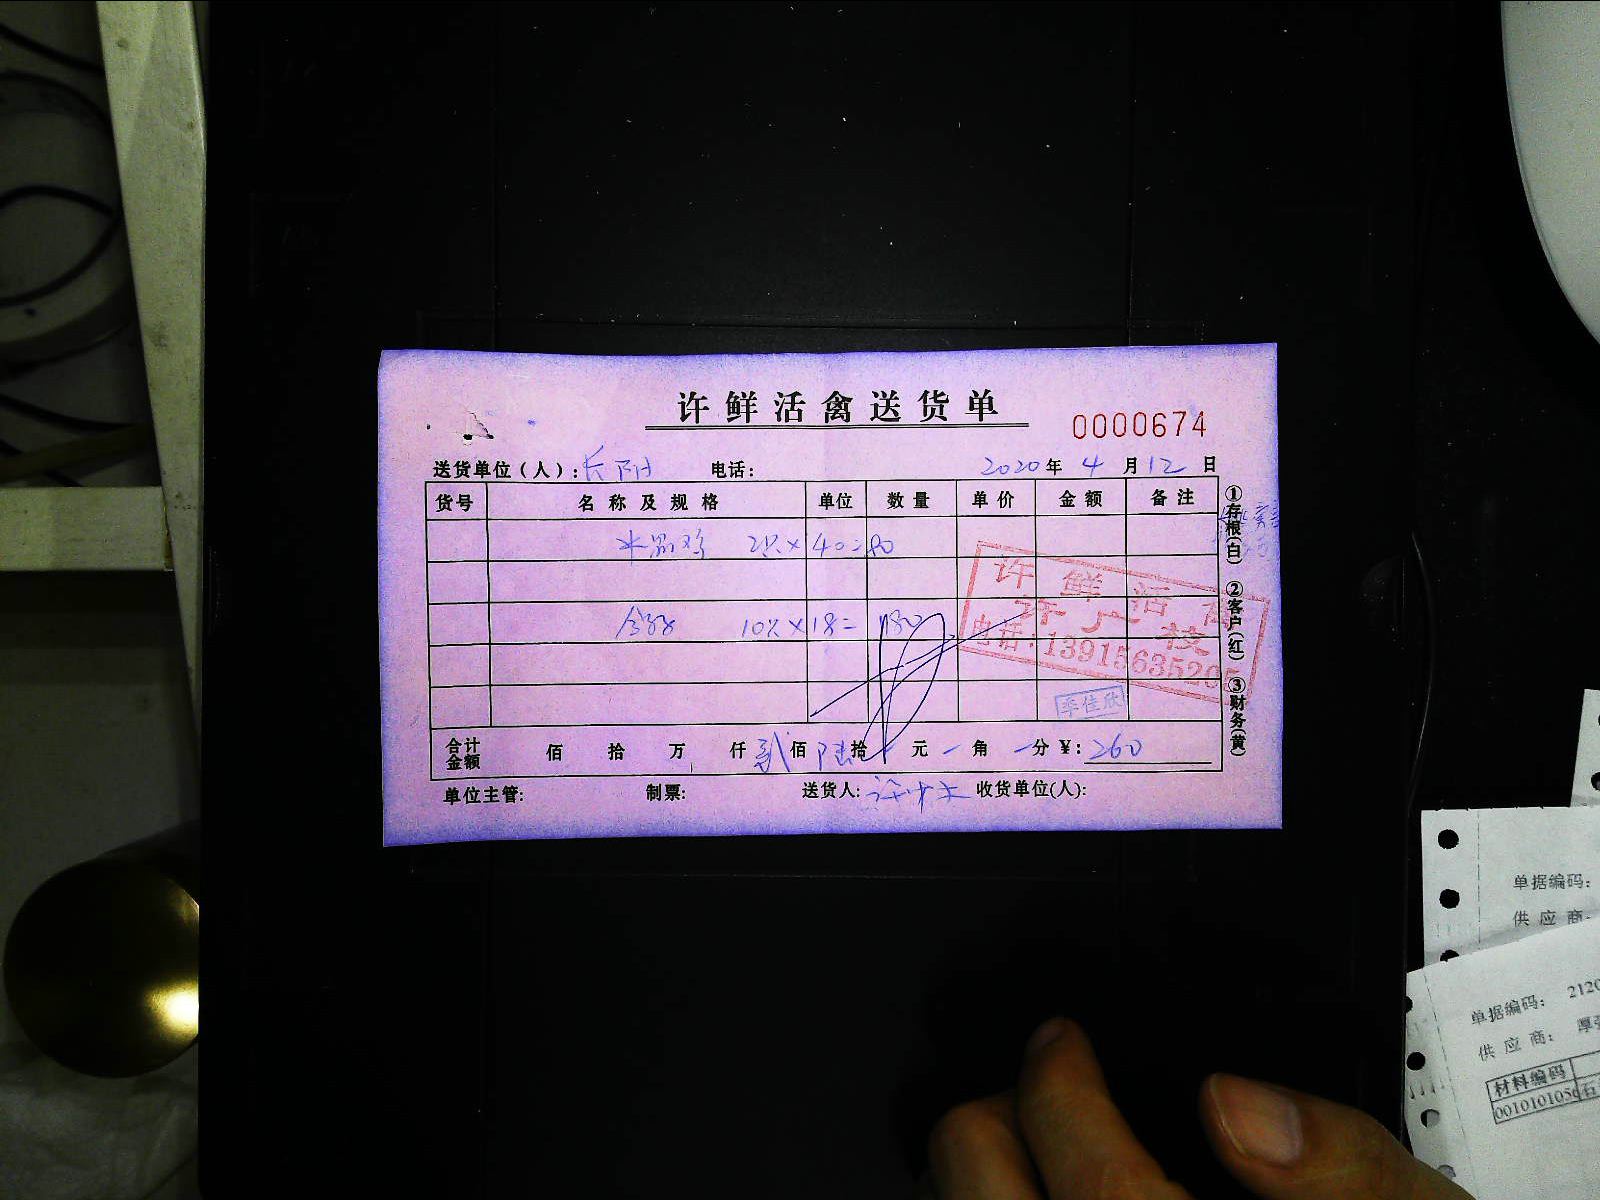 许鲜活禽送货单
0000674
送货单位(人): 长阳 电话: 2020年 4月12日
货号 名称及规格 单位 数量 单价 金额 备注
2只×40=80
10只×18=180
许鲜活禽
电话:1391563520
李佳欣
合计金额 佰 拾 万 仟 贰佰 陆拾 元 角 分 ¥:260
单位主管: 制票: 送货人: 收货单位(人):
①存根(白) ②客户(红) ③财务(黄)
单据编码:
供应商
单据编码: 2120
供应商: 厚
材料编码
0010101056